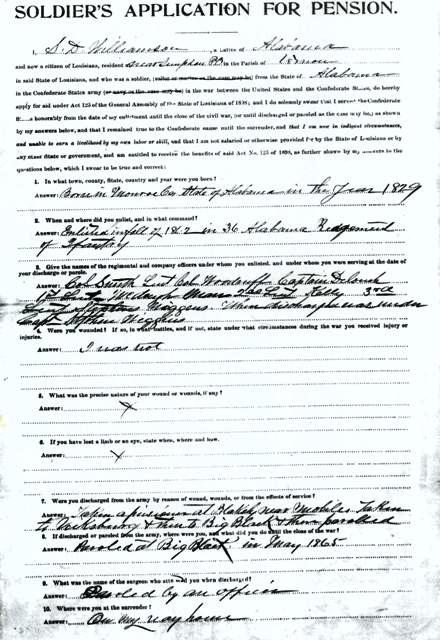 SOLDIER'S APPLICATION FOR PENSION.
I, S. D. Williamson, a native of Alabama
and now a citizen of Louisiana, resident near Simpson P.O. in the Parish of Vernon
in said State of Louisiana, and who was a soldier, from the State of Alabama
in the Confederate States army in the war between the United States and the Confederate States, do hereby
apply for aid under Act 125 of the General Assembly of the State of Louisiana of 1898; and I do solemnly swear that I served the Confederate
States honorably from the date of my enlistment until the close of the civil war, or until discharged or paroled as the case may be, as shown by
my answers below, and that I remained true to the Confederate cause until the surrender, and that I am now in indigent circumstances,
and unable to earn a livelihood by my own labor or skill, and that I am not salaried or otherwise provided for by the State of Louisiana or by
any other State or government, and am entitled to receive the benefits of said Act No. 125 of 1898, as further shown by my answers to the
questions below, which I swear to be true and correct:
1. In what town, county, State, country and year were you born?
Answer: Born in Monroe Co. State of Alabama in the year 1829
2. When and where did you enlist, and in what command?
Answer: Enlisted in fall of 1862 in 36 Alabama Regement
of Infantry
3. Give the names of the regimental and company officers under whom you enlisted, and under whom you were serving at the date of
your discharge or parole.
Answer: Col Smith Lieut Col Woodruff Captain
1st Lieut 2nd Lieut Kelly 3rd
Lieut Stephens Wiggins When discharged was under
Capt Stephen Wiggins
4. Were you wounded? If so, in what battles, and if not, state under what circumstances during the war you received injury or
injuries.
Answer: I was not
5. What was the precise nature of your wound or wounds, if any?
Answer: X
6. If you have lost a limb or an eye, state when, where and how.
Answer: X
7. Were you discharged from the army by reason of wound, wounds, or from the effects of service?
Answer: Taken a prisoner at Blakely near Mobile Taken
to Vicksburg & then to Big Black & then paroled
8. If discharged or paroled from the army, where were you, and what did you do until the close of the war?
Answer: Paroled at Big Black in May 1865
9. What was the name of the surgeon who attended you when discharged?
Answer: Paroled by an officer
10. Where were you at the surrender?
Answer: On my way home